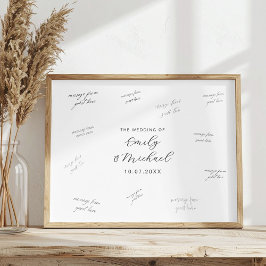 message from
guest here
message from
guest here
message from
guest here
message from
guest here
message from
guest here
THE WEDDING OF
message from
guest here
Emily
& Michael
message from
guest here
10.07.20XX
message from
guest here
message from
guest here
message from
guest here